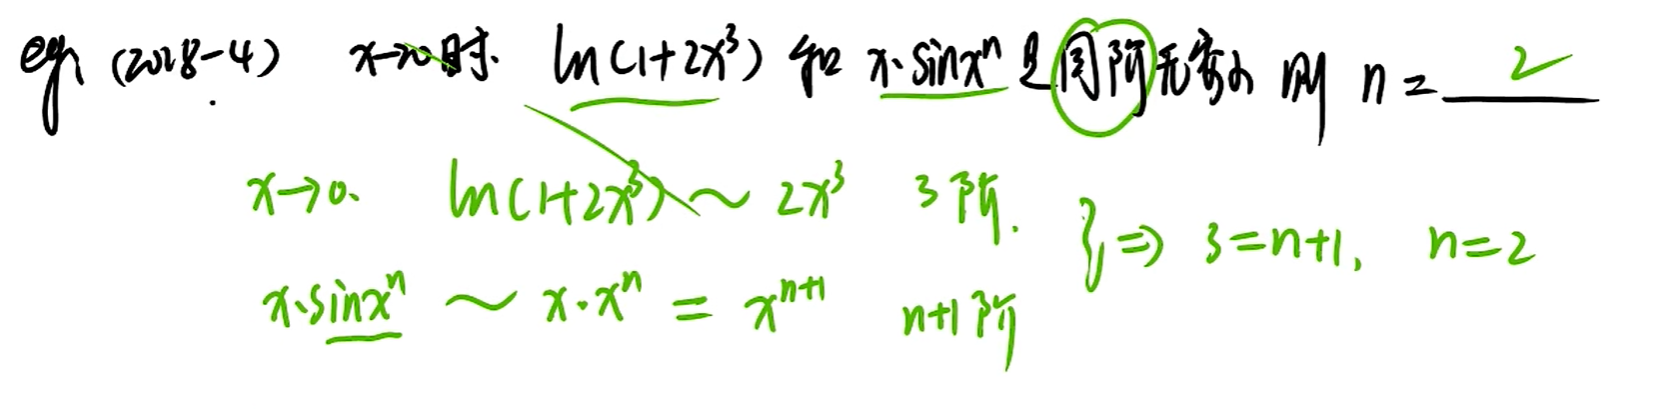 eg. (2018-4) x→0时. ln(1+2x³) 和 x·sinxⁿ 是同阶无穷小 则 n = 2
x→0. ln(1+2x³) ~ 2x³ 3阶. } ⇒ 3=n+1, n=2
x·sinxⁿ ~ x·xⁿ = xⁿ⁺¹ n+1阶